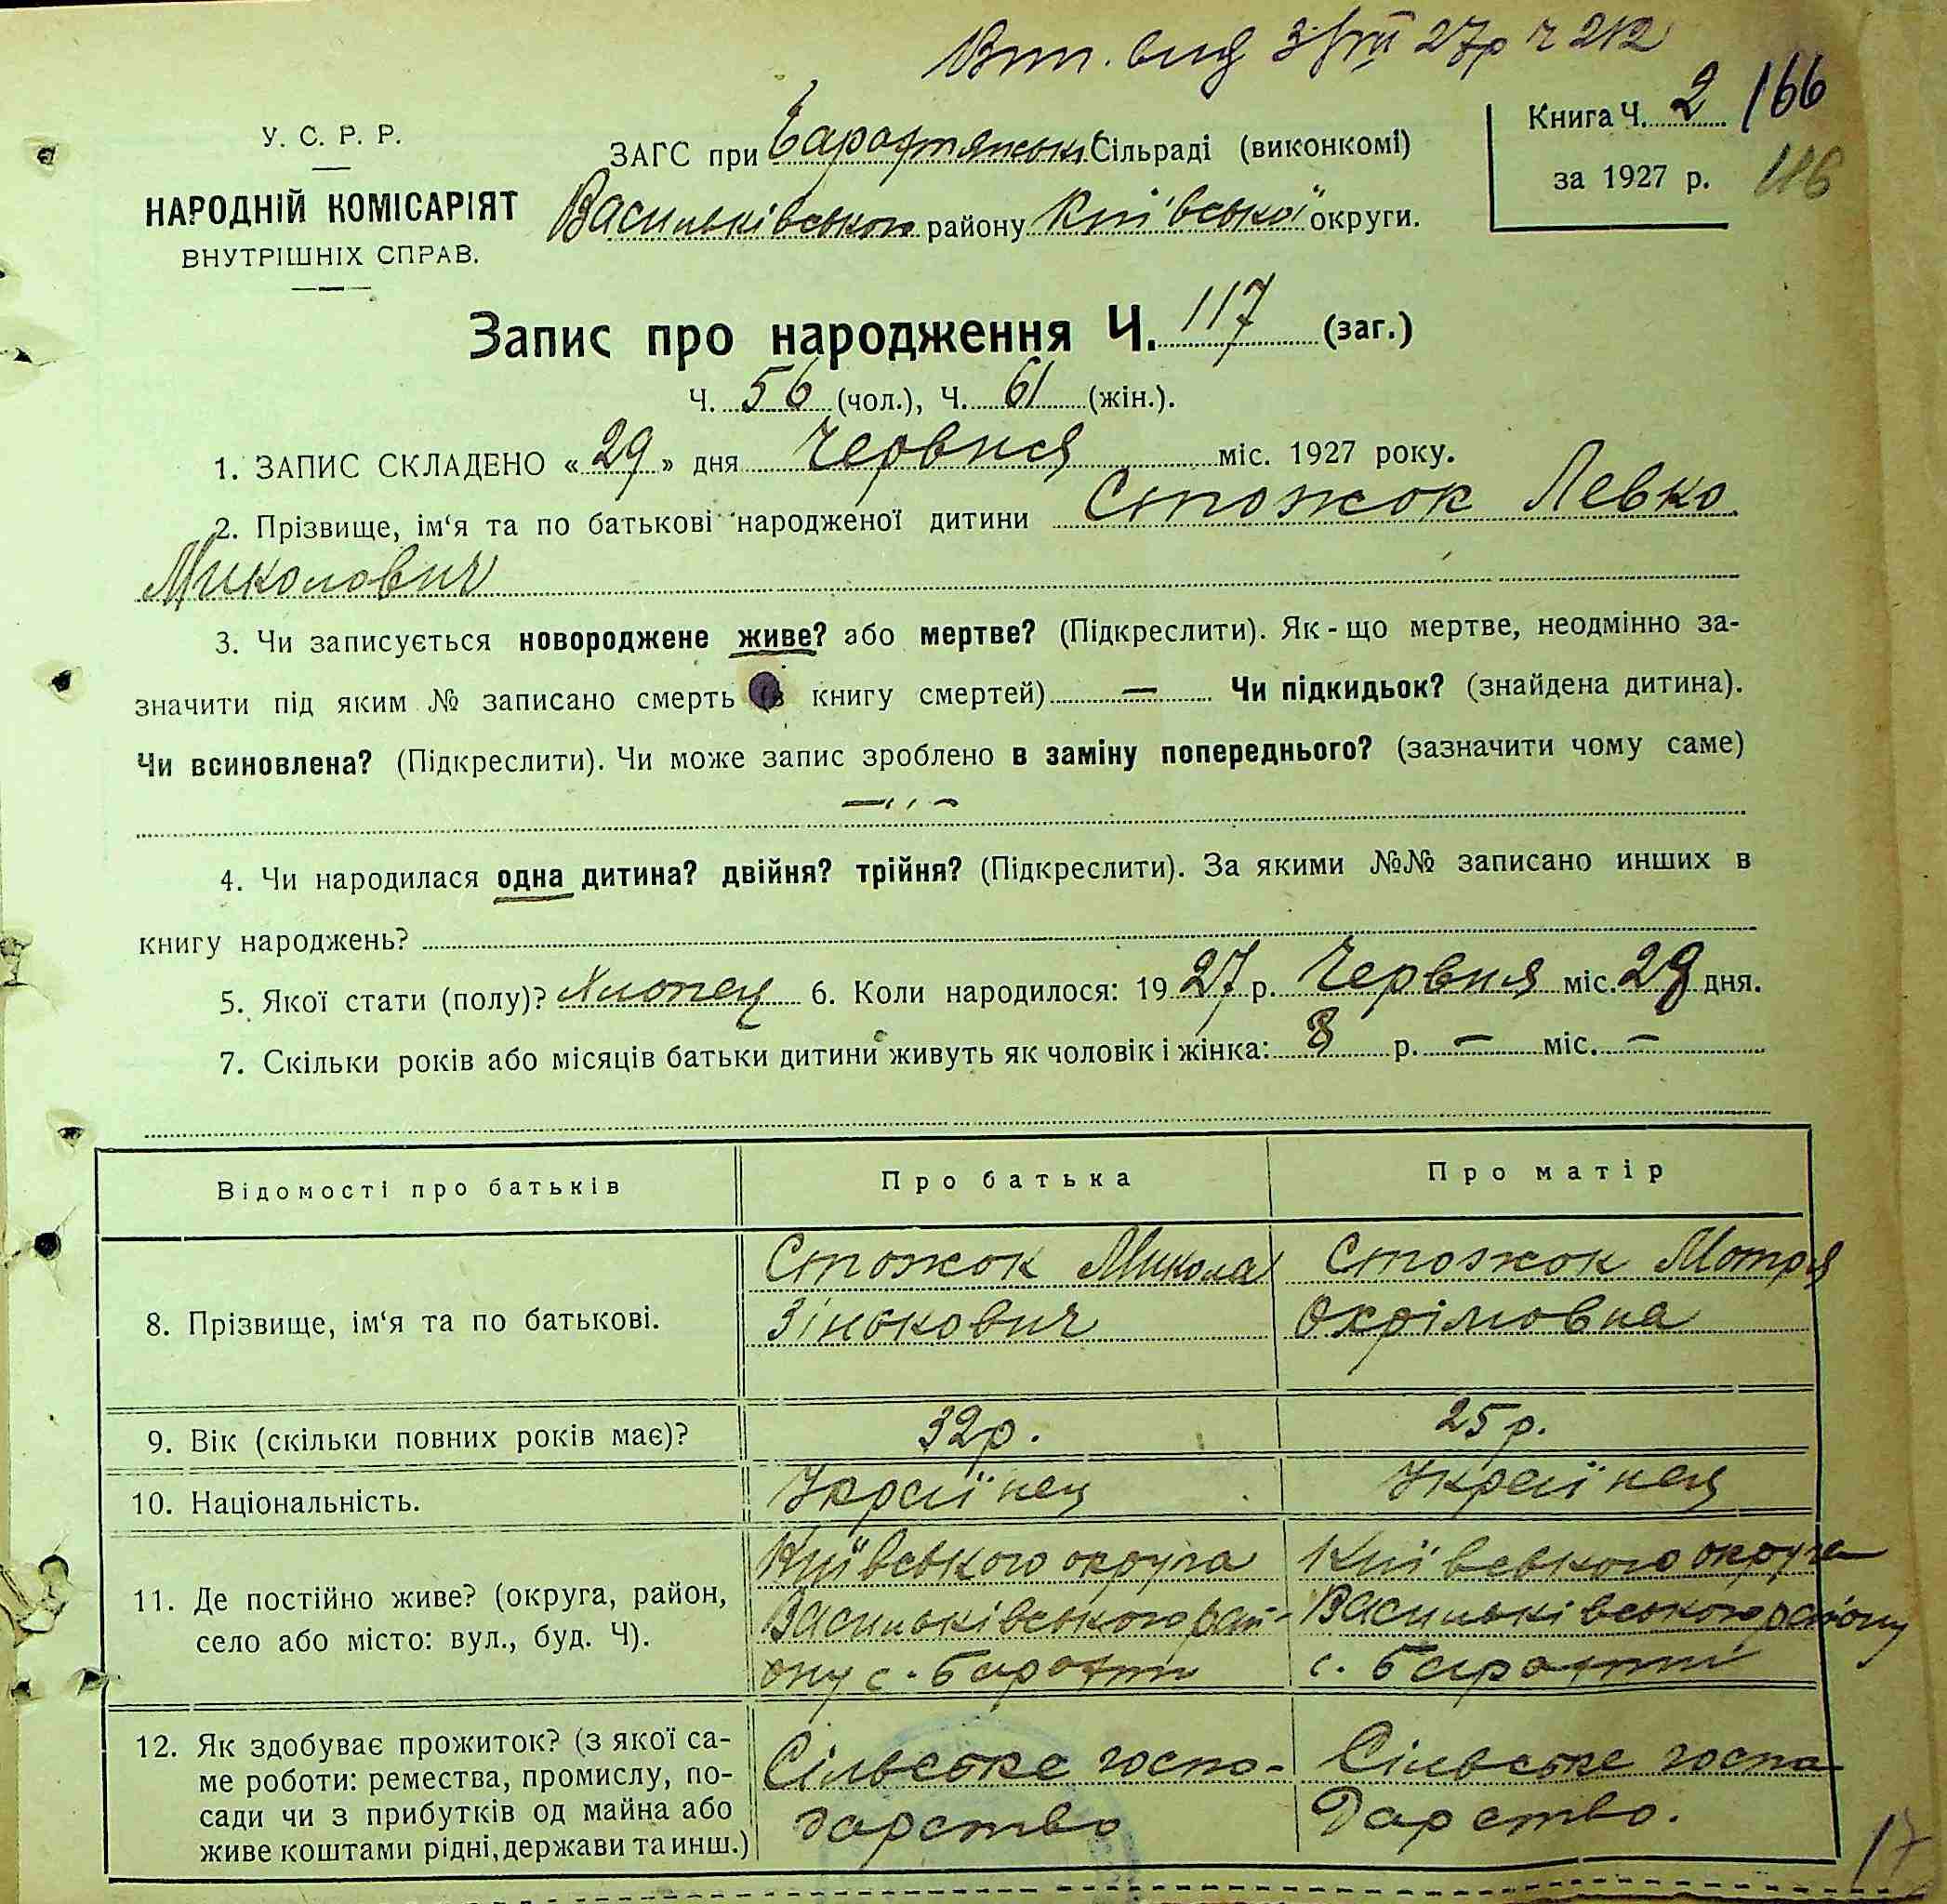 Вип. вид 3/VII 27р ч 212
Книга Ч. 2 166
за 1927 р. 116
У. С. Р. Р.
НАРОДНІЙ КОМІСАРІЯТ
ВНУТРІШНІХ СПРАВ.
ЗАГС при Барахтянськ. Сільраді (виконкомі)
Васильківського району Київської округи.
Запис про народження Ч. 117 (заг.)
Ч. 56 (чол.), Ч. 61 (жін.).
1. ЗАПИС СКЛАДЕНО « 29 » дня Червня міс. 1927 року.
2. Прізвище, ім‘я та по батькові народженої дитини Стожок Левко
Миколович
3. Чи записується новороджене живе? або мертве? (Підкреслити). Як-що мертве, неодмінно за-
значити під яким № записано смерть (в книгу смертей) — Чи підкидьок? (знайдена дитина).
Чи всиновлена? (Підкреслити). Чи може запис зроблено в заміну попереднього? (зазначити чому саме)
— „ —
4. Чи народилася одна дитина? двійня? трійня? (Підкреслити). За якими №№ записано инших в
книгу народжень?
5. Якої стати (полу)? Хлопец 6. Коли народилося: 19 27 р. Червня міс. 28 дня.
7. Скільки років або місяців батьки дитини живуть як чоловік і жінка: 8 р. — міс. —
Відомості про батьків
Про батька
Про матір
8. Прізвище, ім‘я та по батькові.
Стожок Микола
Зінькович
Стожок Мотря
Охрімовна
9. Вік (скільки повних років має)?
32р.
25р.
10. Національність.
Україnец
Україnец
11. Де постійно живе? (округа, район,
село або місто: вул., буд. Ч).
Київського округа
Васильківського рай-
ону с. Барахти
Київського округа
Васильківського району
с. Барахти
12. Як здобуває прожиток? (з якої са-
ме роботи: ремества, промислу, по-
сади чи з прибутків од майна або
живе коштами рідні, держави та инш.)
Сільське госпо-
дарство
Сільське госпо-
дарство.
17